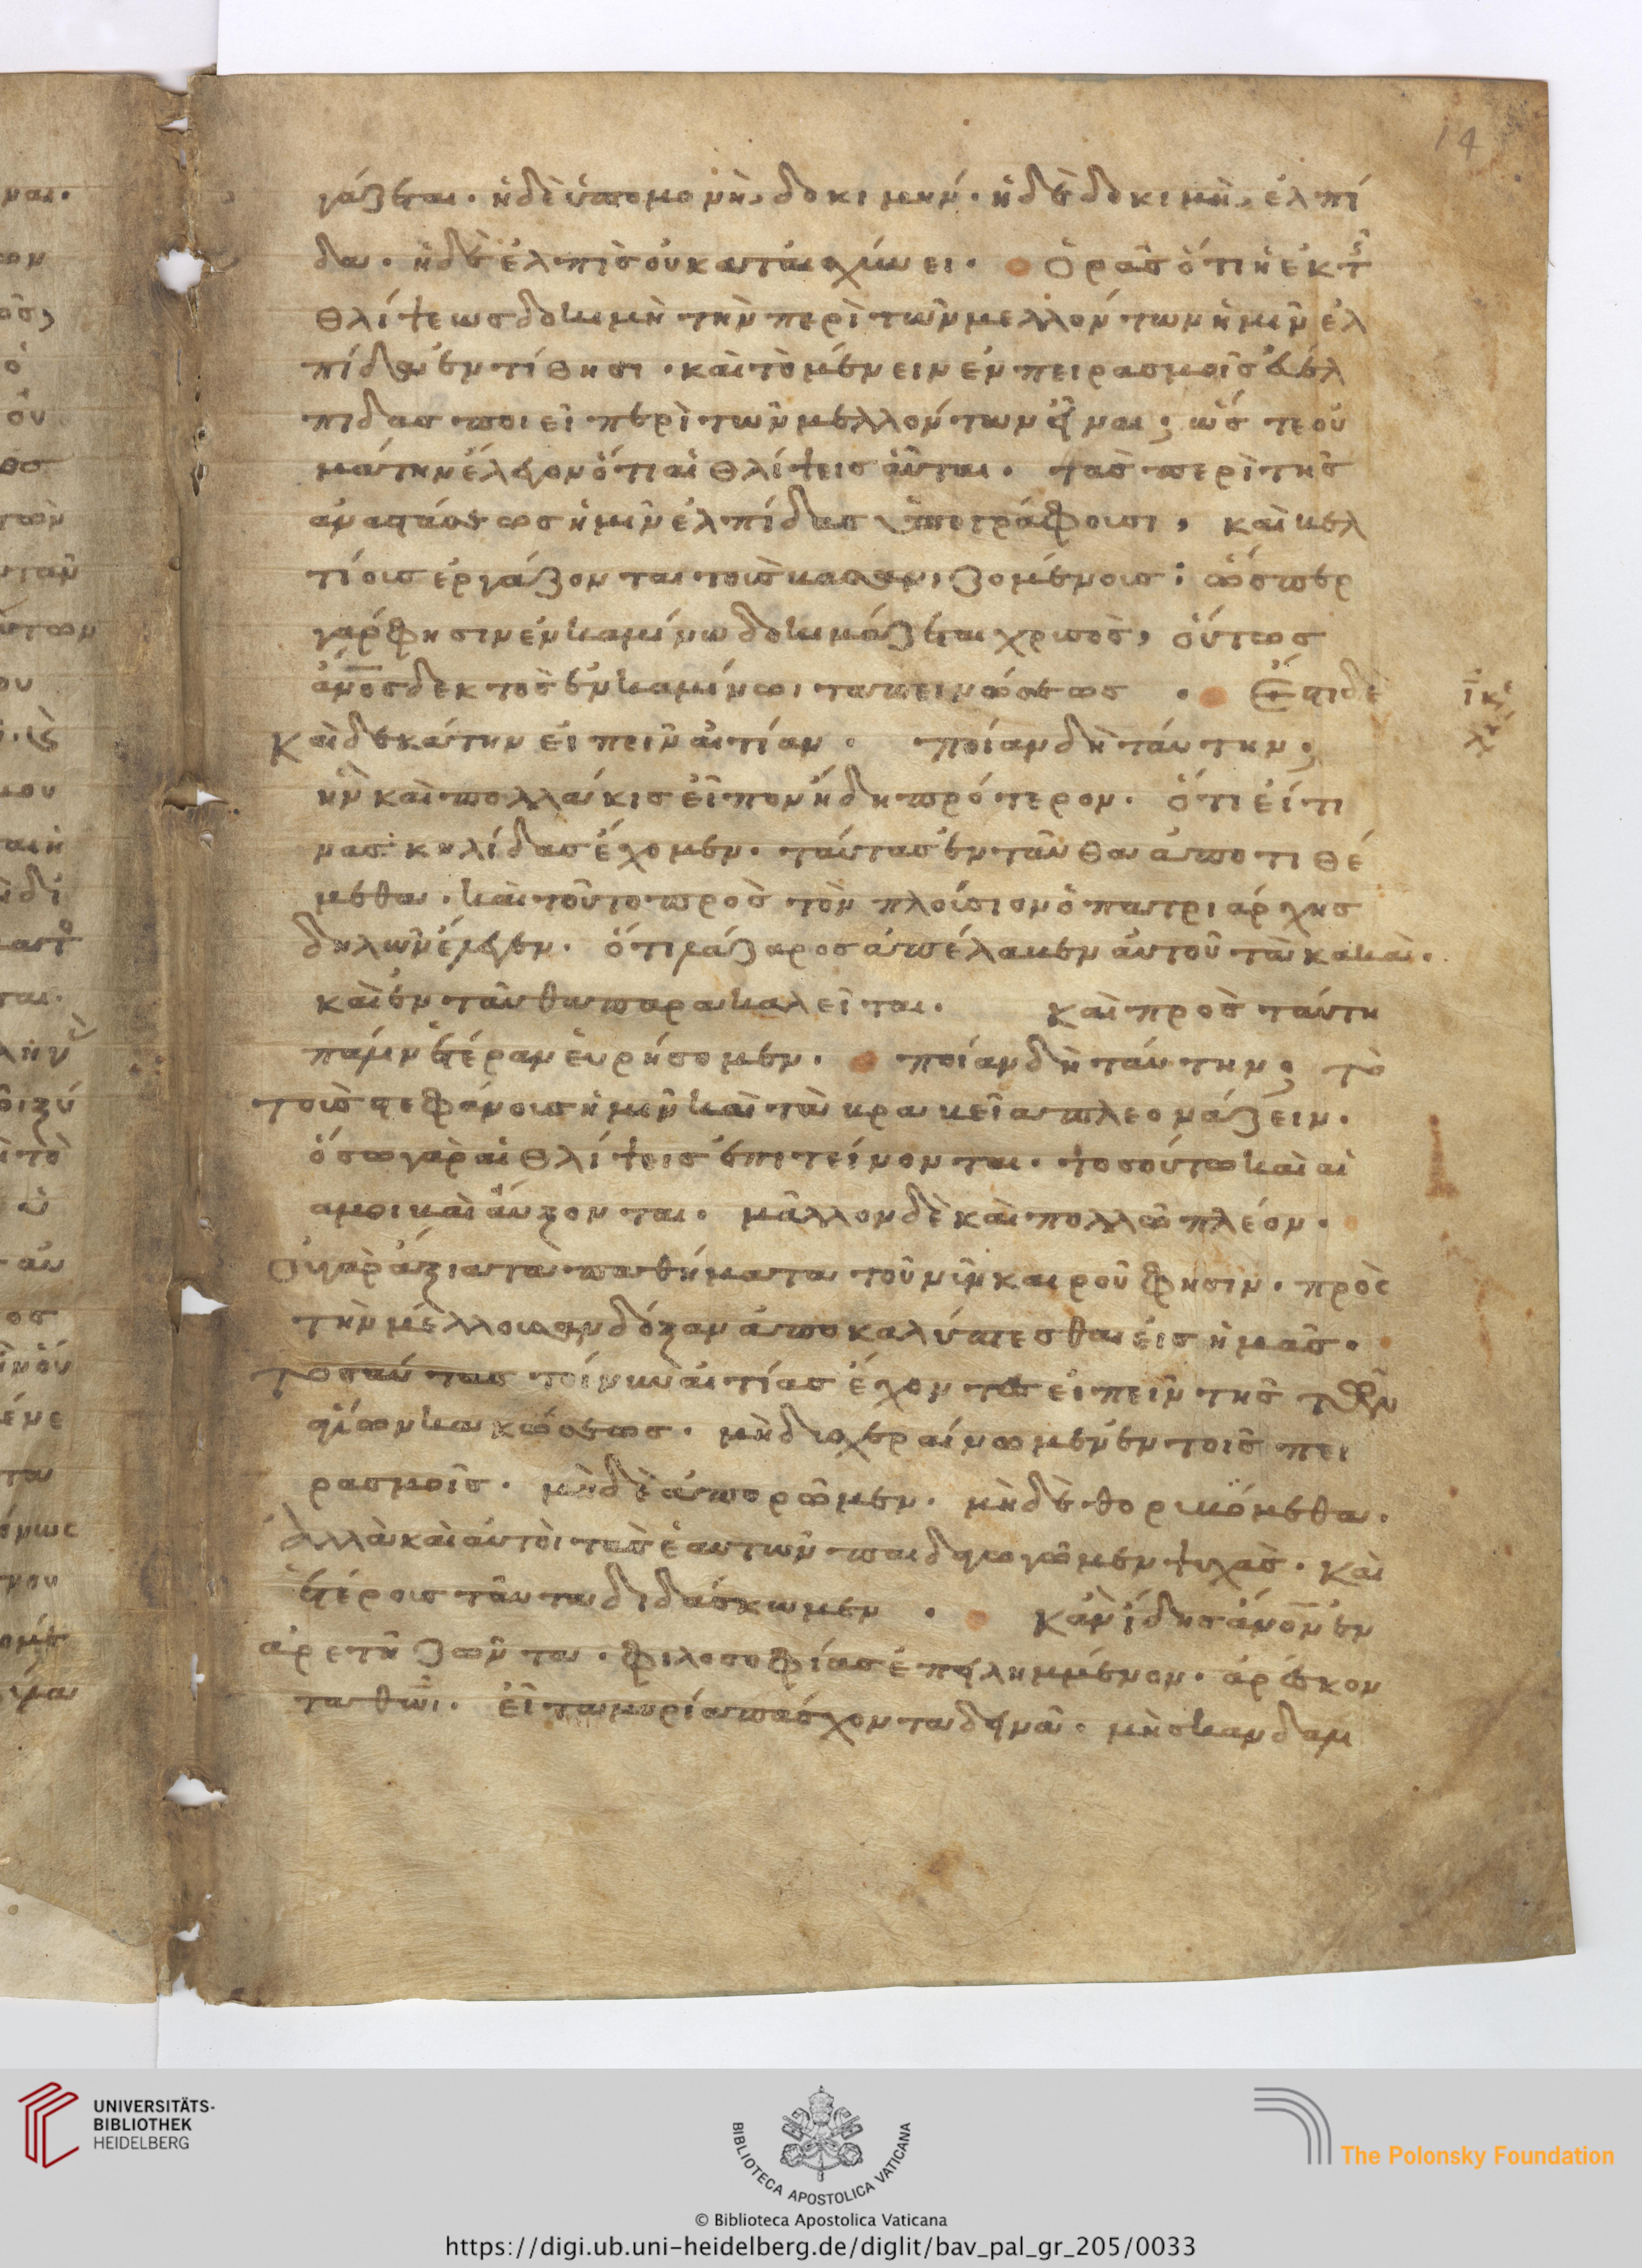 14
γάζεται· ἡ δὲ ὑπομονὴ, δοκιμήν· ἡ δὲ δοκιμὴ, ἐλπί
δα· ἡ δὲ ἐλπὶς οὐ καταισχύνει· Ὁρᾶς ὅτι ἡ ἐκ τῆς
θλίψεως δοκιμὴ τὴν περὶ τῶν μελλόντων ἡμῖν ἐλ
πίδα ἐντίθησι· καὶ τὸ μένειν ἐν πειρασμοῖς εὐέλ
πιδας ποιεῖ περὶ τῶν μελλόντων εἶναι; ὥστε οὐ
μάτην ἔλεγον ὅτι αἱ θλίψεις αὗται· τὰς περὶ τῆς
ἀναστάσεως ἡμῖν ἐλπίδας ὑπογράφουσι, καὶ βελ
τίους ἐργάζονται τοὺς βασανιζομένους; ὥσπερ
γάρ φησιν ἐν καμίνω δοκιμάζεται χρυσὸς, οὕτως
ἄνος δεκτὸς ἐν καμίνωι ταπεινώσεως · Ἔστι δὲ
καὶ δεκάτην εἰπεῖν αἰτίαν· ποίαν δὴ ταύτην;
ἣν καὶ πολλάκις εἶπον ἤδη πρότερον· ὅτι εἴ τι
νας κηλίδας ἔχομεν· ταύτας ἐνταῦθα ἀποτιθέ
μεθα· καὶ τοῦτο πρὸς τὸν πλούσιον ὁ πατριάρχης
δηλῶν ἔλεγεν· ὅτι λάζαρος ἀπέλαβεν αὐτοῦ τὰ κακὰ·
καὶ ἐνταῦθα παρακαλεῖται· καὶ πρὸς ταύτη
πάλιν ἑτέραν εὑρήσομεν· ποίαν δὴ ταύτην; τὸ
τοὺς στεφάνους ἡμῖν καὶ τὰ βραβεῖα πλεονάζειν·
ὅσω γὰρ αἱ θλίψεις ἐπιτείνονται· τοσούτω καὶ αἱ
αμοιβαὶ αὔξονται· μᾶλλον δὲ καὶ πολλῶ πλέον·
Οὐ γὰρ ἄξια τὰ παθήματα τοῦ νῦν καιροῦ φησιν· πρὸς
τὴν μέλλουσαν δόξαν ἀποκαλύπτεσθαι εἰς ἡμᾶς·
Τοσαύτας τοίνυν αἰτίας ἔχοντες εἰπεῖν τῆς τῶν
ἁγίων κακώσεως· μὴ δυσχεραίνωμεν ἐν τοῖς πει
ρασμοῖς· μὴ δὲ ἀπορῶμεν· μὴ δὲ θορυβώμεθα·
ἀλλὰ καὶ αὐτοὶ τὰς ἑαυτῶν παιδαγωγῶμεν ψυχὰς· καὶ
ἑτέρους ταῦτα διδάσκωμεν · κἂν ἴδης ἄνον ἐν
ἀρετῆ ζῶντα· φιλοσοφίας ἐπειλημμένον· ἀρέσκον
τα θωι· εἶτα μυρία πάσχοντα δεινὰ· μὴ σκανδαλι
UNIVERSITÄTS-
BIBLIOTHEK
HEIDELBERG
BIBLIOTECA APOSTOLICA VATICANA
The Polonsky Foundation
© Biblioteca Apostolica Vaticana
https://digi.ub.uni-heidelberg.de/diglit/bav_pal_gr_205/0033